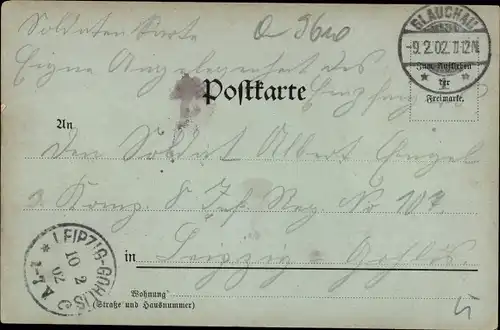 Soldaten Karte
Eigne Angelegenheit des
Empfängers
GLAUCHAU
9.2.02. 11-12N.
Zum Aufkleben
der
Freimarke.
Postkarte
An
den Soldat Albert Engel
Komp. 8 Inf. Reg. No 107
in Leipzig - Gohlis
LEIPZIG-GOHLIS
10 2
02
Wohnung
(Straße und Hausnummer)